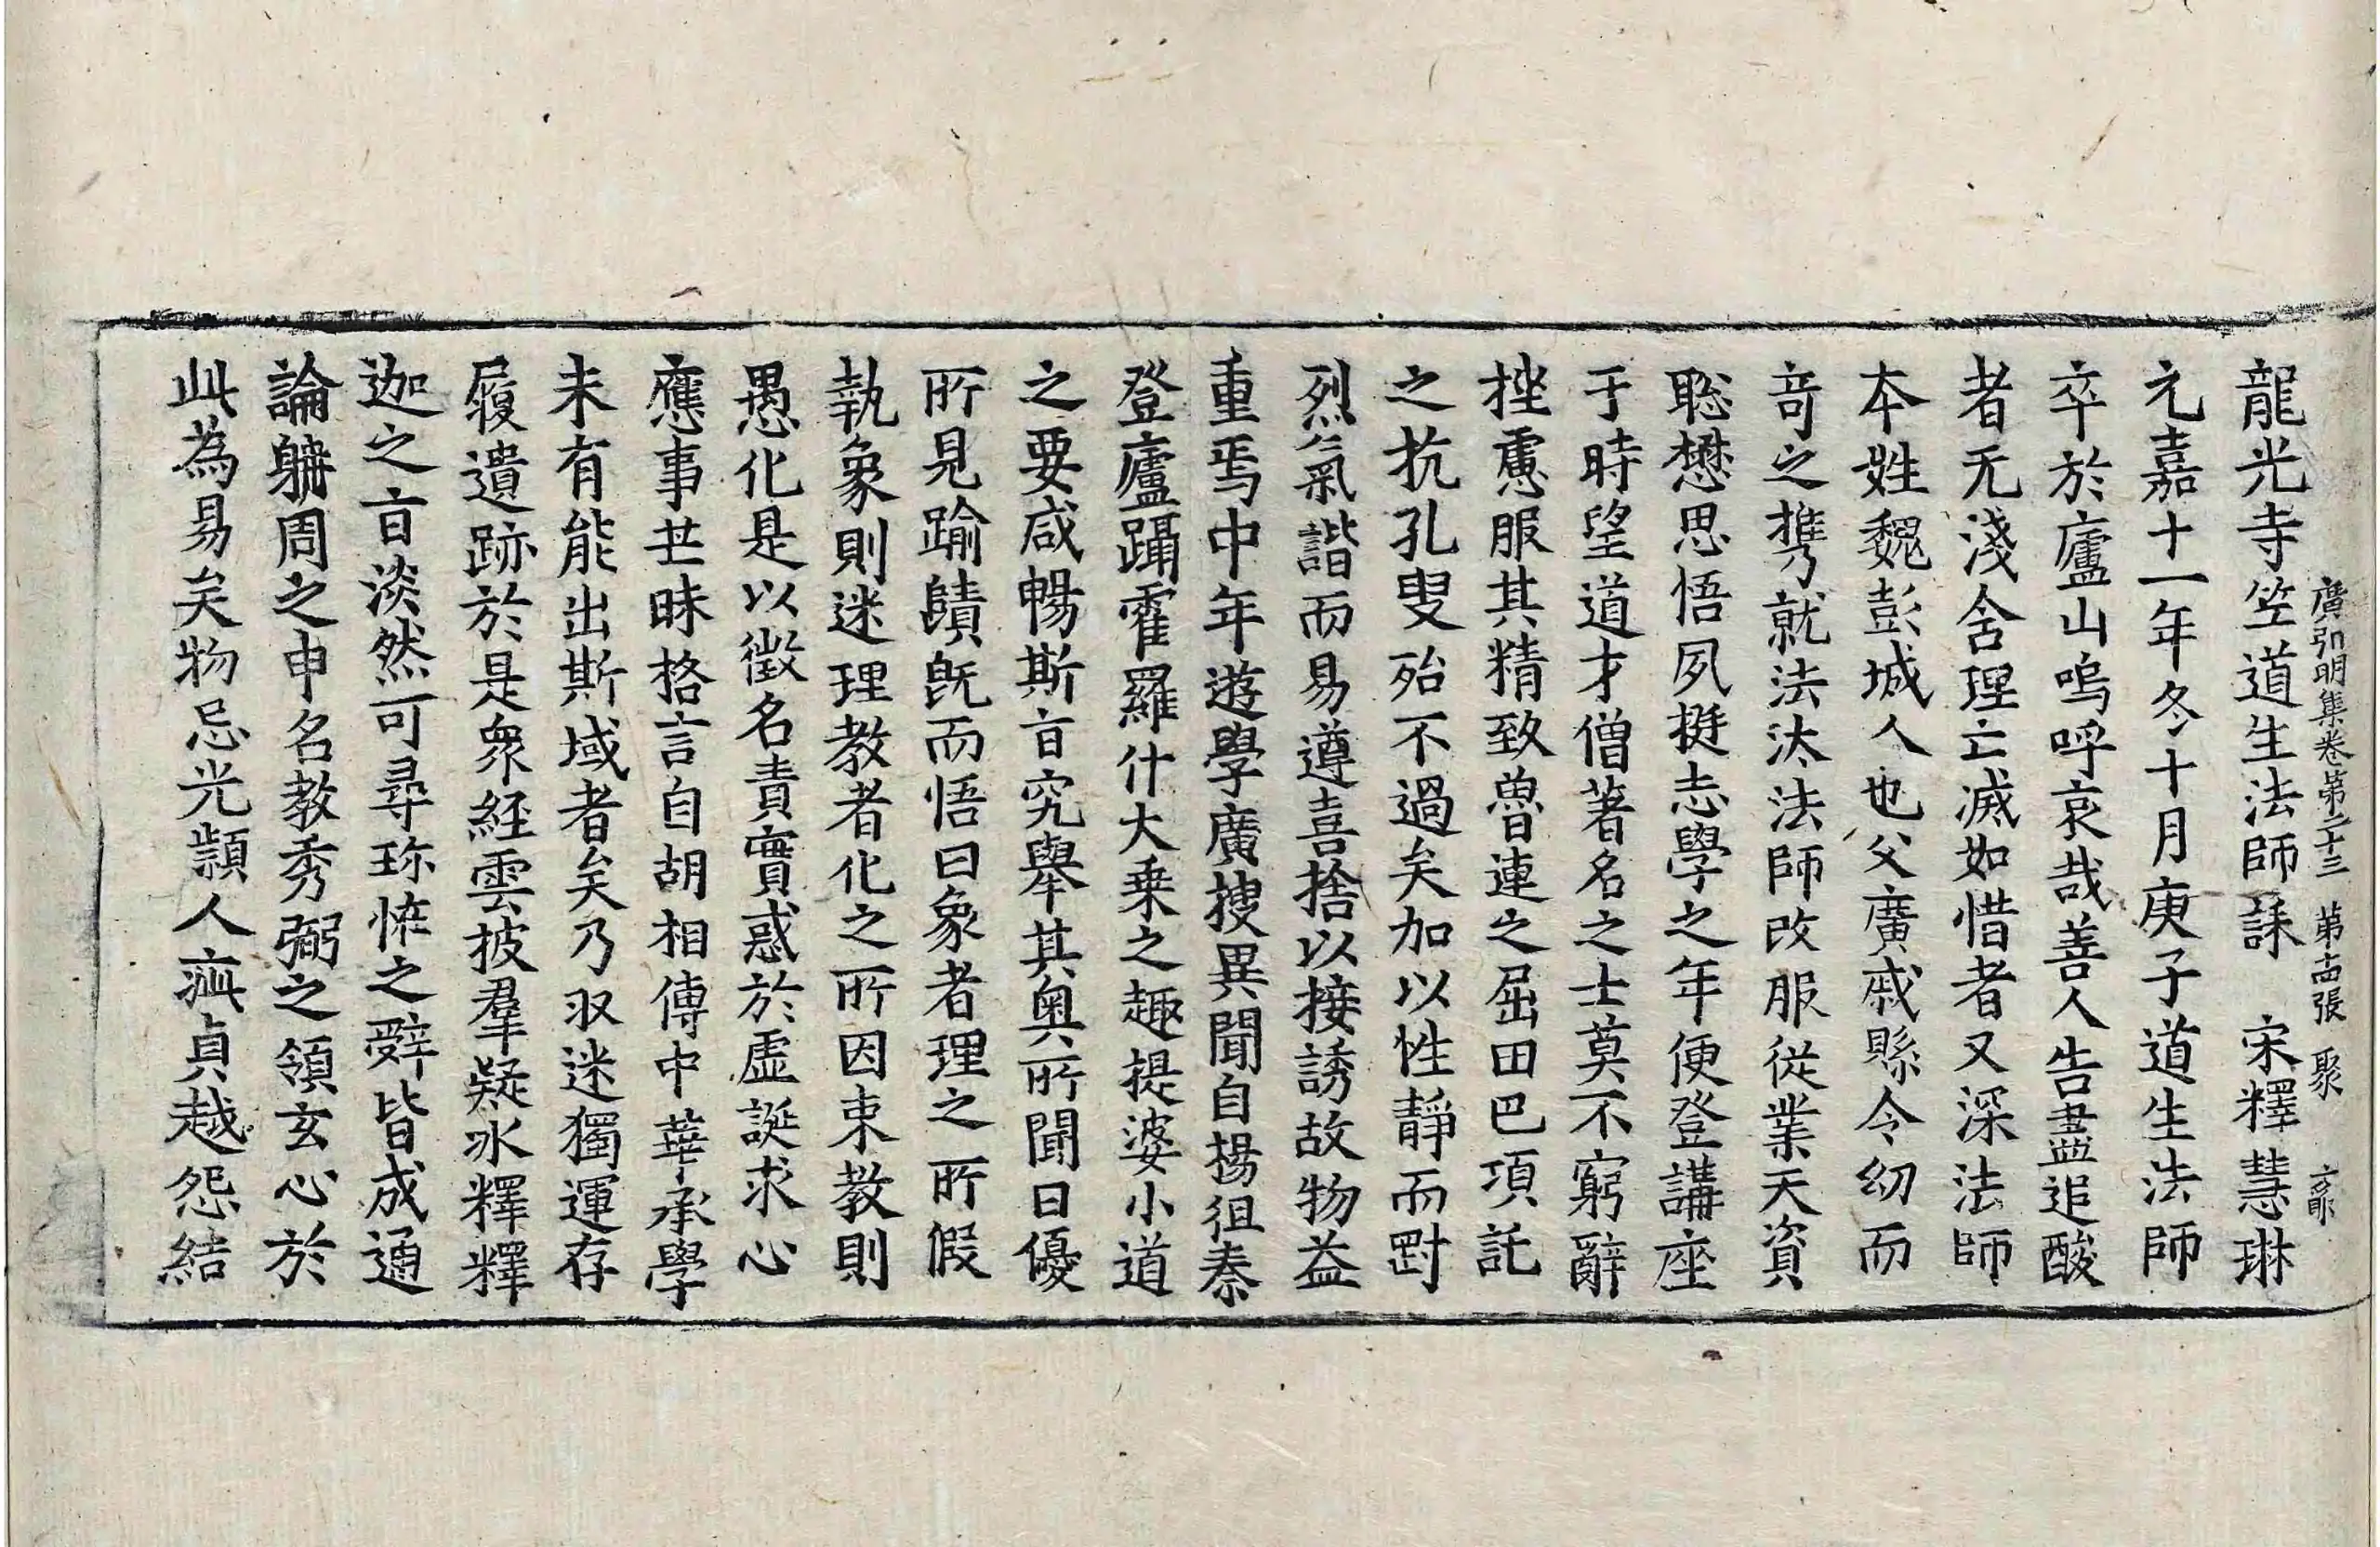 廣弘明集卷第二十三 第十四張 聚
龍光寺竺道生法師誄 宋釋慧琳
元嘉十一年冬十月庚子道生法師
卒於廬山嗚呼哀哉善人告盡追酸
者无淺含理亡滅如惜者又深法師
本姓魏彭城人也父廣戚縣令幼而
竒之携就法汰法師改服從業天資
聦懋思悟夙挺志學之年便登講座
于時望道才僧著名之士莫不窮辭
挫慮服其精致魯連之屈田巴項託
之抗孔叟殆不過矣加以性静而罰
烈氣諧而易遵喜捨以接誘故物益
重焉中年遊學廣搜異聞自楊徂秦
登廬躡霍羅什大乗之趣提婆小道
之要咸暢斯㫖究舉其奥所聞日優
所見踰賾旣而悟曰象者理之所假
執象則迷理教者化之所因束教則
愚化是以徵名責實惑於虚誕求心
應事芒昧格言自胡相傳中華承學
未有能出斯域者矣乃収迷獨運存
履遺跡於是衆経雲披羣疑氷釋釋
迦之㫖淡然可尋珎恠之辤皆成通
論躰周之申名教秀弼之領玄心於
此為易矣物忌光顆人疵貞越怨結